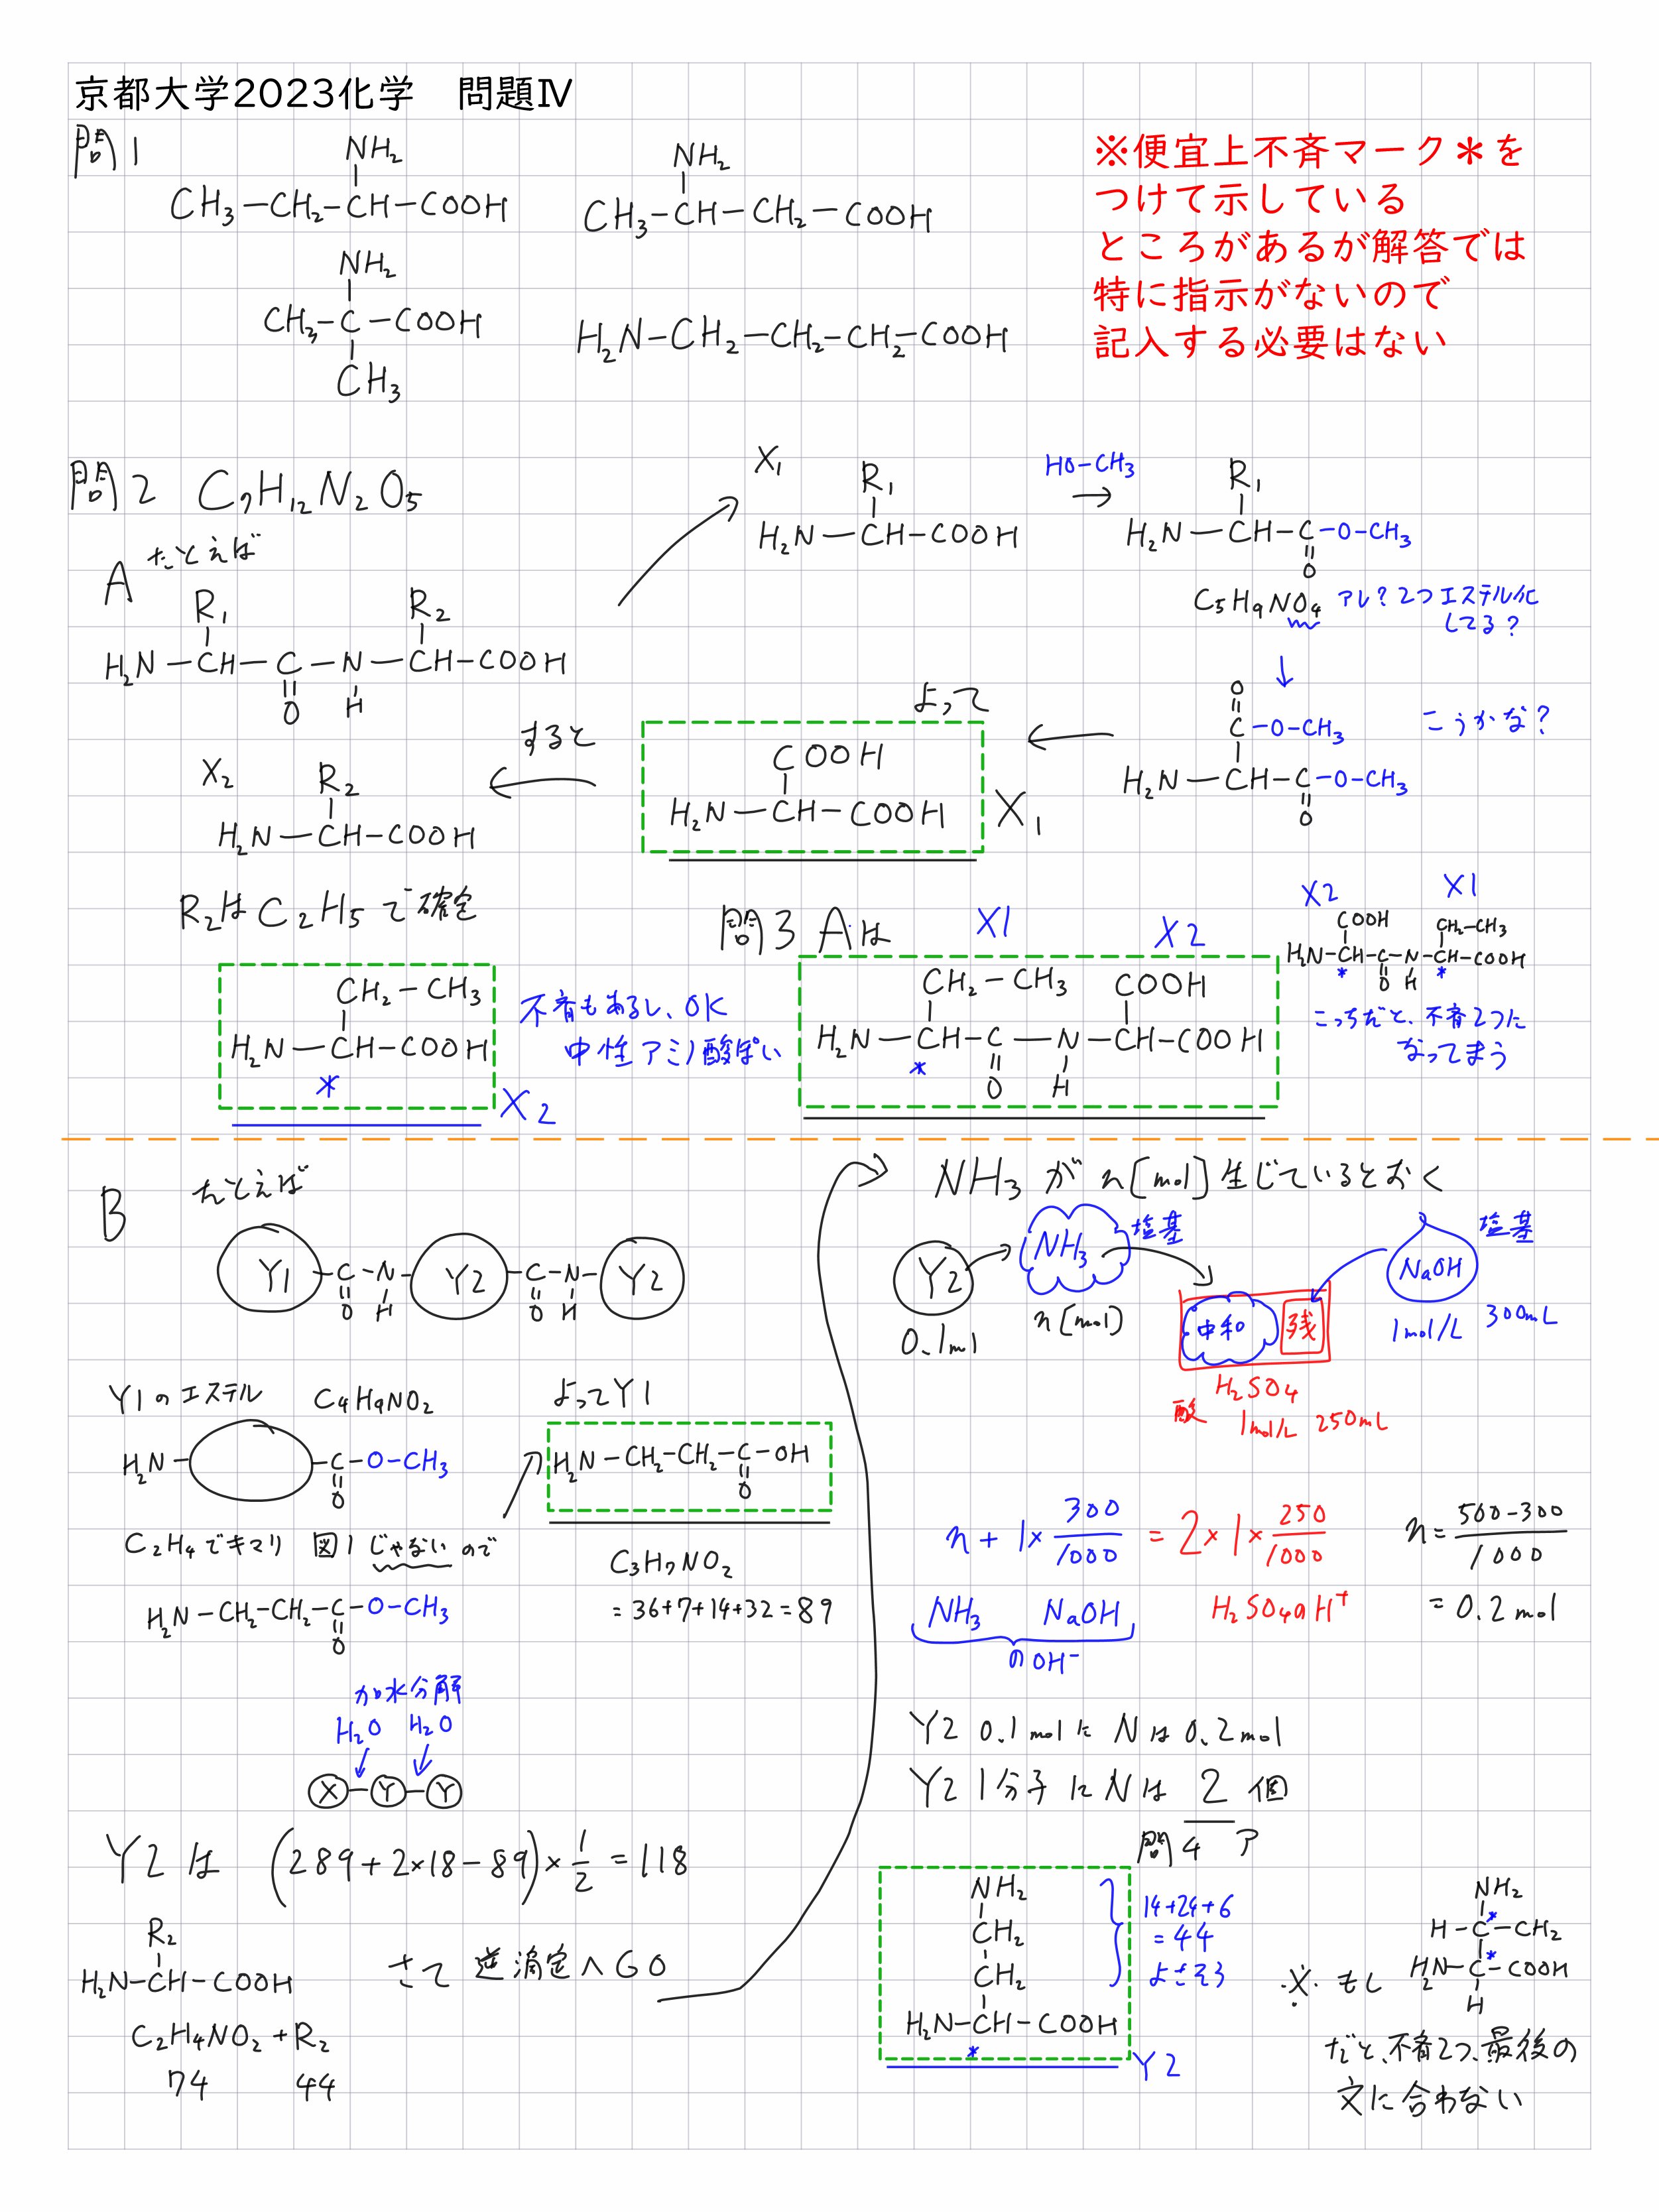 京都大学2023化学 問題Ⅳ
問1
NH₂
CH₃-CH₂-CH-COOH
NH₂
CH₃-CH-CH₂-COOH
NH₂
CH₃-C-COOH
CH₃
H₂N-CH₂-CH₂-CH₂-COOH
※便宜上不斉マーク＊を
つけて示している
ところがあるが解答では
特に指示がないので
記入する必要はない
問2 C₇H₁₂N₂O₅
A たとえば
R₁ R₂
H₂N-CH-C-N-CH-COOH
O H
X₁
R₁
H₂N-CH-COOH
HO-CH₃
→
R₁
H₂N-CH-C-O-CH₃
O
C₅H₉NO₄ アレ?2つエステル化
してる?
↓
O
C-O-CH₃
こうかな?
H₂N-CH-C-O-CH₃
O
よって
COOH
H₂N-CH-COOH X₁
すると
X₂
R₂
H₂N-CH-COOH
R₂はC₂H₅で確定
CH₂-CH₃
H₂N-CH-COOH
*
X₂
不斉もあるし、OK
中性アミノ酸ぽい
問3 Aは
X1 X2
CH₂-CH₃ COOH
H₂N-CH-C-N-CH-COOH
* O H
X2 X1
COOH CH₂-CH₃
H₂N-CH-C-N-CH-COOH
* O H *
こっちだと、不斉2つに
なってまう
B たとえば
Y1-C-N-Y2-C-N-Y2
O H O H
Y1のエステル C₄H₉NO₂
H₂N- -C-O-CH₃
O
C₂H₄でキマリ 図1じゃないので
H₂N-CH₂-CH₂-C-O-CH₃
O
よってY1
H₂N-CH₂-CH₂-C-OH
O
C₃H₇NO₂
=36+7+14+32=89
加水分解
H₂O H₂O
X-Y-Y
Y2は (289+2×18-89)×1/2=118
R₂
H₂N-CH-COOH
C₂H₄NO₂+R₂
74 44
さて 逆滴定へGO
NH₃がn[mol]生じているとおく
Y2 NH₃ 塩基
0.1mol n[mol]
中和 残
NaOH 塩基
1mol/L 300mL
酸 H₂SO₄
1mol/L 250mL
n+1×300/1000=2×1×250/1000
NH₃ NaOH
のOH⁻
H₂SO₄のH⁺
n=500-300/1000
=0.2mol
Y2 0.1molにNは0.2mol
Y2 1分子にNは2個
問4 ア
NH₂
CH₂
CH₂
H₂N-CH-COOH
*
Y2
14+24+6
=44
よさそう
※もし
NH₂
H-C*-CH₂
H₂N-C*-COOH
H
だと、不斉2つ、最後の
文に合わない